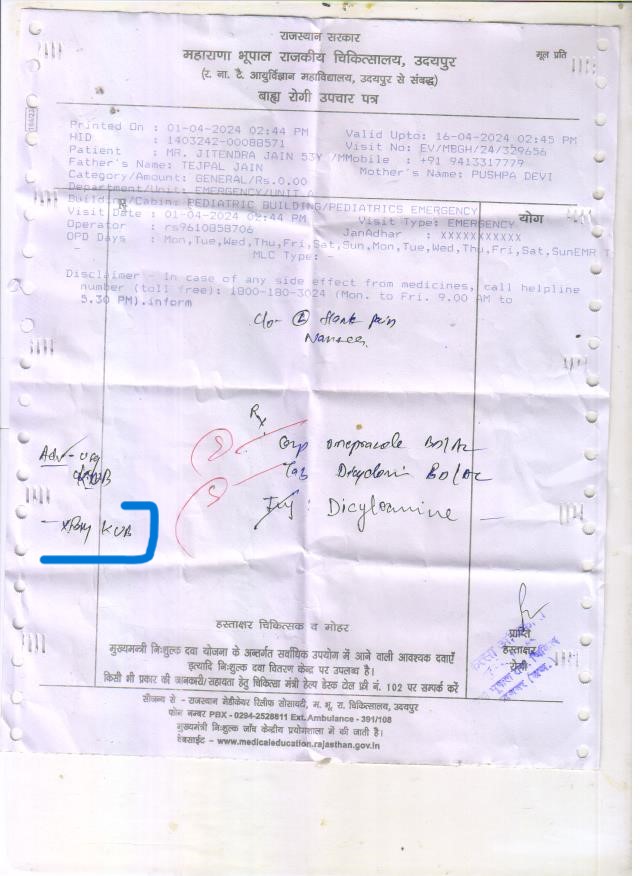 राजस्थान सरकार
महाराणा भूपाल राजकीय चिकित्सालय, उदयपुर
मूल प्रति
(र. ना. टै. आयुर्विज्ञान महाविद्यालय, उदयपुर से संबद्ध)
बाह्य रोगी उपचार पत्र
Printed On : 01-04-2024 02:44 PM Valid Upto: 16-04-2024 02:45 PM
HID : 1403242-00088571 Visit No: EV/MBGH/24/329656
Patient : MR. JITENDRA JAIN 53Y /MMobile : +91 9413317779
Father's Name: TEJPAL JAIN Mother's Name: PUSHPA DEVI
Category/Amount: GENERAL/Rs.0.00
Department/Unit: EMERGENCY/UNIT A
Building/Cabin: PEDIATRIC BUILDING/PEDIATRICS EMERGENCY
योग
Visit Date : 01-04-2024 02:44 PM Visit Type: EMERGENCY
Operator : rs9610858706 JanAdhar : XXXXXXXXXXX
OPD Days : Mon,Tue,Wed,Thu,Fri,Sat,Sun,Mon,Tue,Wed,Thu,Fri,Sat,SunEMR T
- MLC Type: -
Disclaimer - In case of any side effect from medicines, call helpline
number (toll free): 1800-180-3024 (Mon. to Fri. 9.00 AM to
5.30 PM).inform
C/o- flank pain
Rx
Cap omeprazole BD/AC
Tab BD/AC
Adv-
Inj:
- Xray KUB
हस्ताक्षर चिकित्सक व मोहर
प्राप्ति
हस्ताक्षर
रोगी
मुख्यमन्त्री निःशुल्क दवा योजना के अन्तर्गत सर्वाधिक उपयोग में आने वाली आवश्यक दवाएँ
इत्यादि निःशुल्क दवा वितरण केन्द्र पर उपलब्ध है।
किसी भी प्रकार की जानकारी/सहायता हेतु चिकित्सा मंत्री हेल्प डेस्क टोल फ्री नं. 102 पर सम्पर्क करें
सौजन्य से - राजस्थान मेडीकेयर रिलीफ सोसायटी, म. भू. रा. चिकित्सालय, उदयपुर
फोन नम्बर PBX - 0294-2528811 Ext. Ambulance - 391/108
मुख्यमंत्री निःशुल्क जाँच केन्द्रीय प्रयोगशाला में की जाती है।
वेबसाईट - www.medicaleducation.rajasthan.gov.in